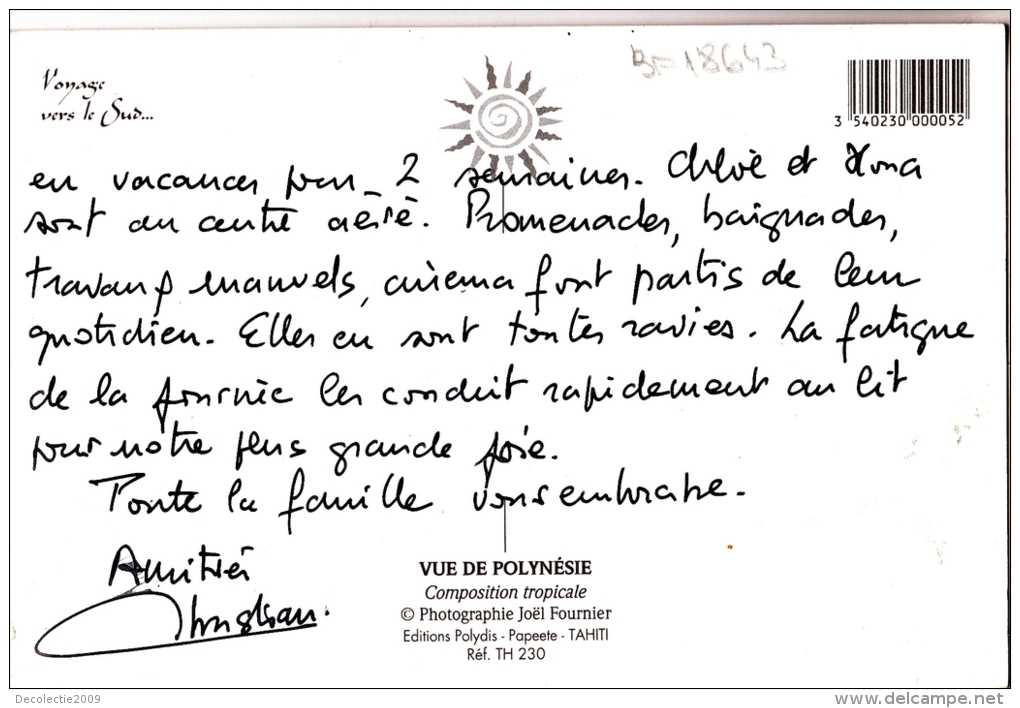 BF 18643
Voyage
vers le Sud...
3 540230 000052
en vacances pour 2 semaines. Chloé et
sont au centre aéré. Promenades, baignades,
travaux manuels, cinema font partis de leur
quotidien. Elles en sont toutes ravies. La fatigue
de la journée les conduit rapidement au lit
pour notre plus grande joie.
Toute la famille vous embrasse.
Amitiés
VUE DE POLYNÉSIE
Composition tropicale
© Photographie Joël Fournier
Editions Polydis - Papeete - TAHITI
Réf. TH 230
Decolectie2009
www.delcampe.net